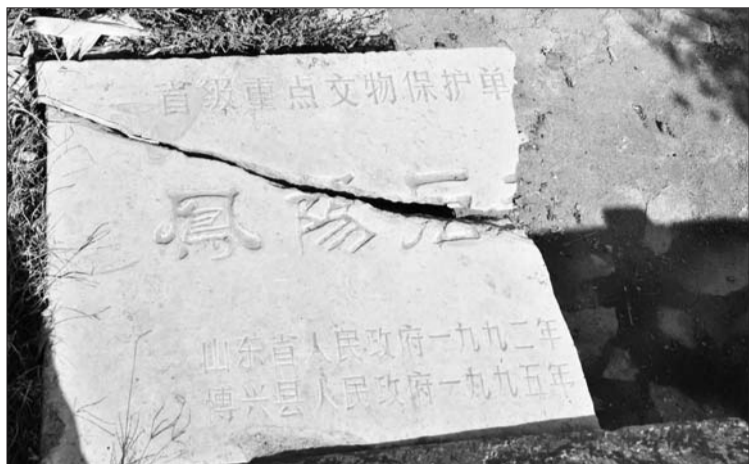 省级重点文物保护单
鳳陽
山东省人民政府一九九二年
博兴县人民政府一九九五年